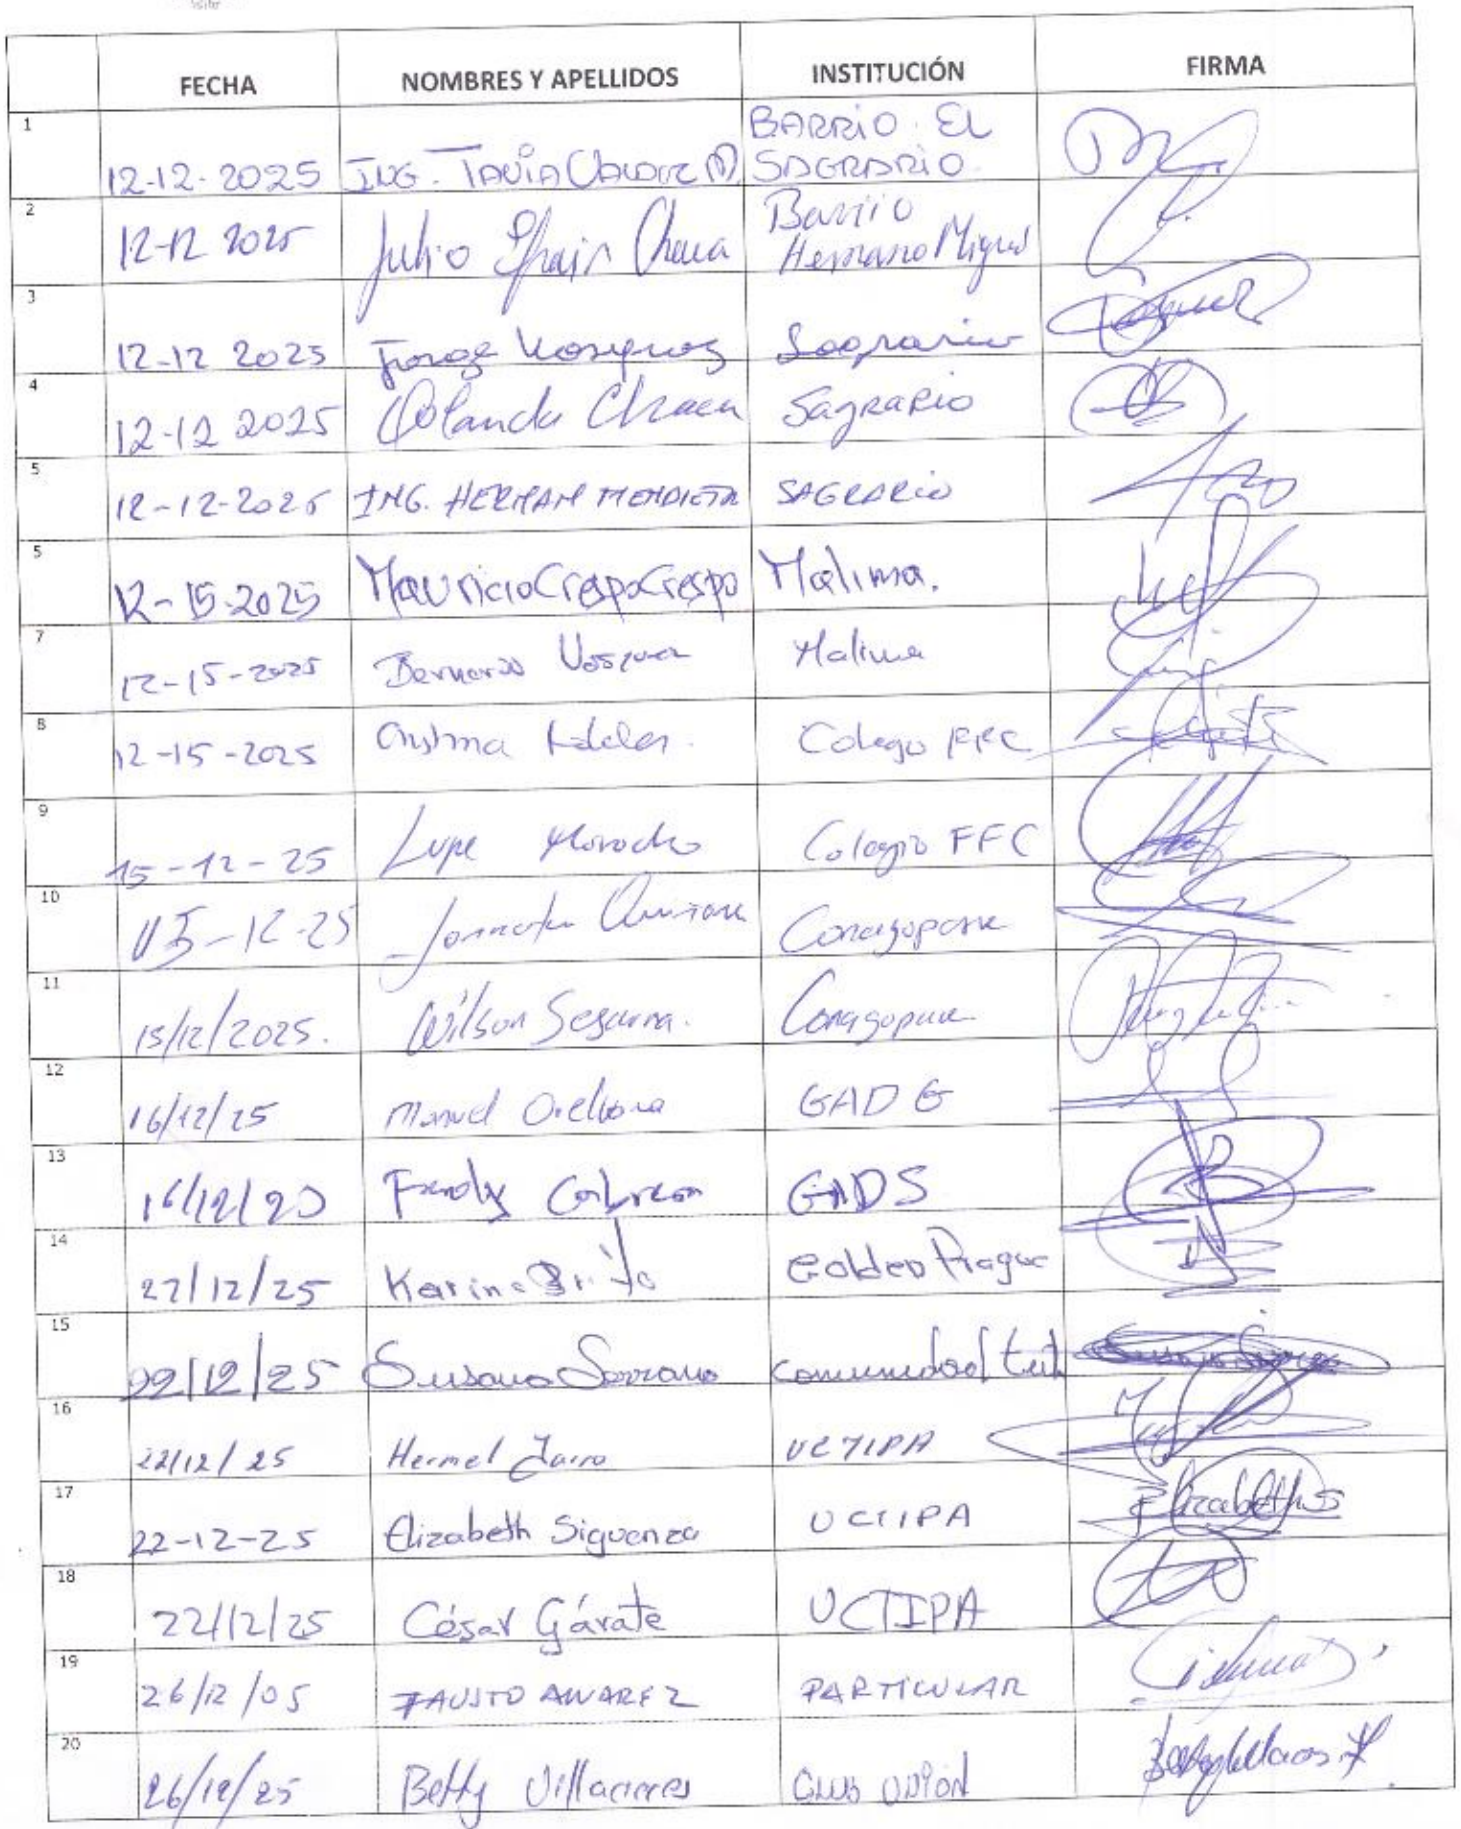 FECHA NOMBRES Y APELLIDOS INSTITUCIÓN FIRMA
1 12-12-2025 ING. TANIA BARRIO EL
SAGRARIO
2 12-12 2025 Julio Efrain Chaca Barrio
Hermano Miguel
3 12-12 2025 Jorge Vasquez Sagrario
4 12-12 2025 Rolando Chaca SagRaRio
5 12-12-2025 ING. HERNAN MENDIETA SAGRARIO
5 12-15-2025 Mauricio Crespo Crespo Malima.
7 12-15-2025 Bernardo Vasquez Malima
8 12-15-2025 Colegio FFC
9 15-12-25 Lupe Morocho Colegio FFC
10 15-12-25 Conagopare
11 15/12/2025. Wilson Segarra. Conagopare
12 16/12/25 Manuel Orellana GAD G
13 Cabrera GADS
14 27/12/25 Karina Brito Golden Prague
15 22/12/25 Susana Serrano comunidad
16 22/12/25 Hermel UCTIPA
17 22-12-25 Elizabeth Siguenza UCTIPA Elizabeth S
18 22/12/25 César Gárate UCTIPA
19 26/12/05 FAUSTO ALVAREZ PARTICULAR
20 26/12/25 Betty Villacreces CLUB UNIÓN